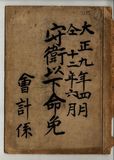 大正九年四月
仝十二年六月
守衛以下命免
會計係